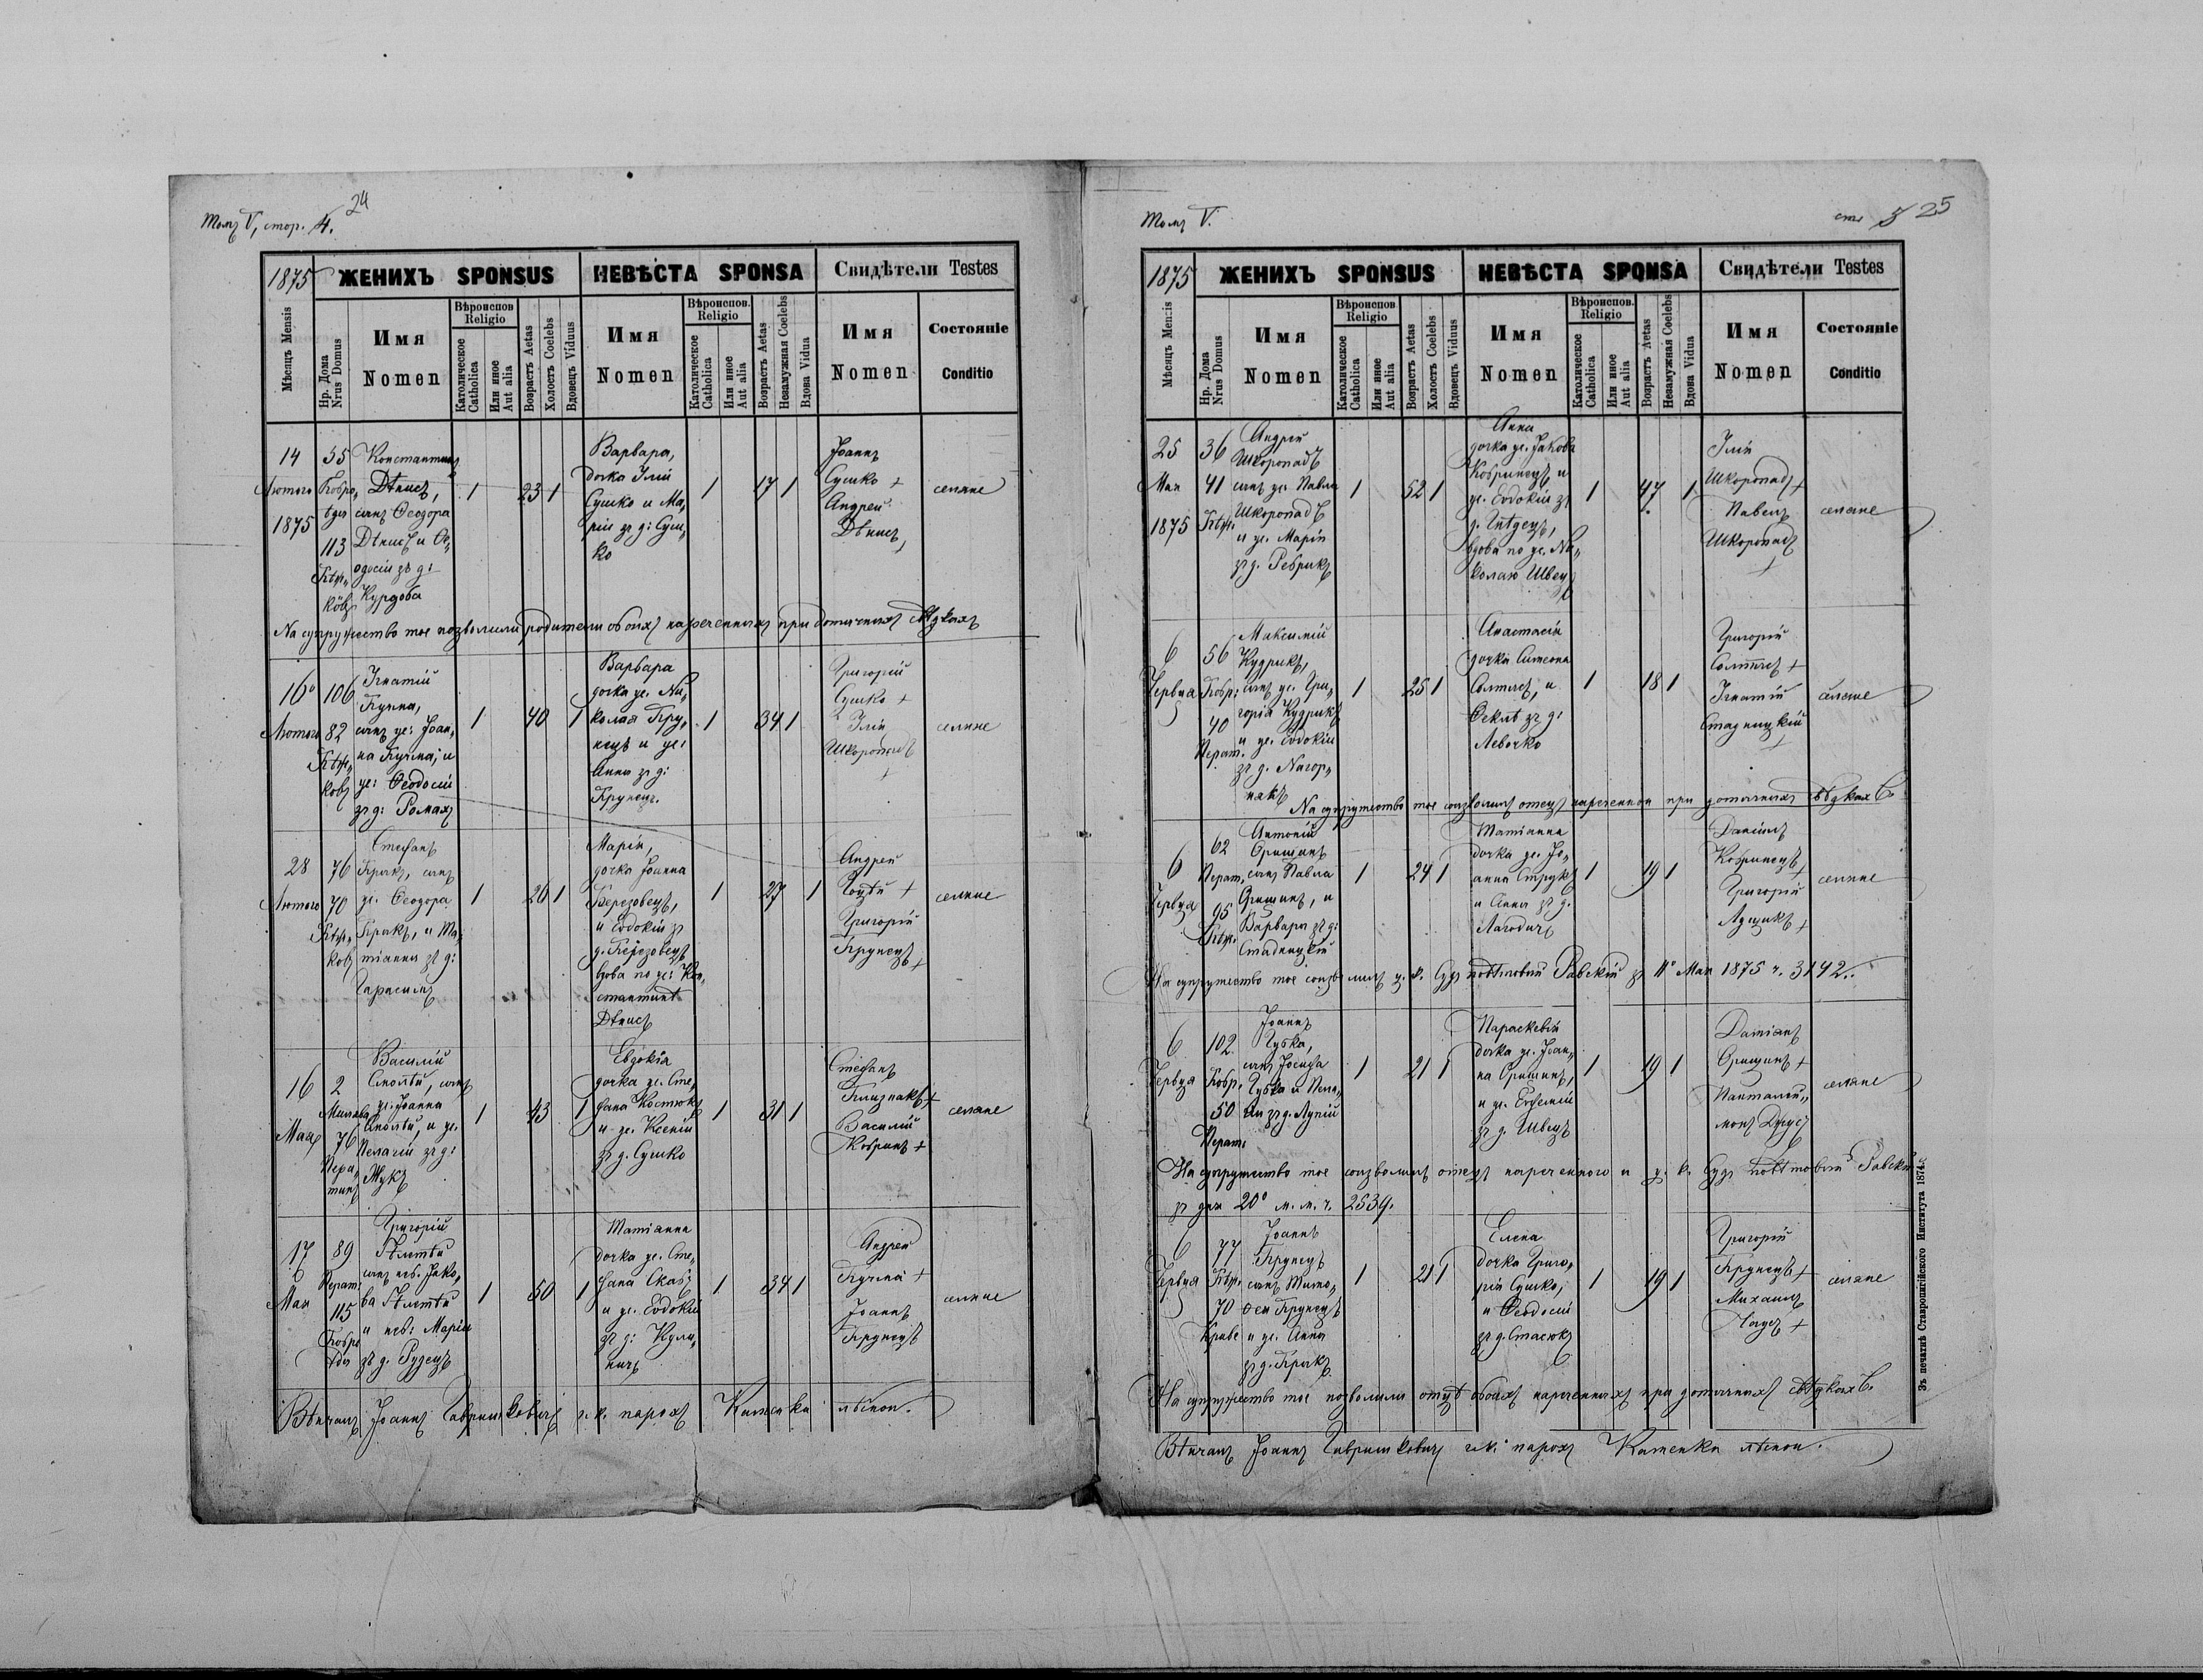 Томъ V, стор. 4. 24
1875 ЖЕНИХЪ SPONSUS НЕВѢСТА SPONSA Свидѣтели Testes
Мѣсяцъ Mensis
Нр. Дома Nrus Domus
Имя Nomen
Вѣроиспов. Religio
Католическое Catholica
Или иное Aut alia
Возрастъ Aetas
Холостъ Coelebs
Вдовецъ Viduus
Имя Nomen
Вѣроиспов. Religio
Католическое Catholica
Или иное Aut alia
Возрастъ Aetas
Незамужная Coelebs
Вдова Vidua
Имя Nomen
Состояніе Conditio
14 Лютого 1875
55
113
Константинъ
Дѣнисъ,
сынъ Ѳеодора
Дѣнисъ и Ѳе„
одосіи зъ д:
Курдоба
1 23 1
Варвара,
дочка Іліи
Сушко и Ма„
ріи зъ д: Суш„
ко
1 17 1
Іоаннъ
Сушко +
Андрей
Дѣнисъ,
селяне
На супружество тое позволили родители обоихъ нареченныхъ при дотичныхъ свѣдкахъ
16º Лютого
106
82
Ігнатій
Кучма,
сынъ уе: Іоан„
на Кучма, и
уе: Ѳеодосіи
зъ д: Ромахъ
1 40 1
Варвара
дочка уе. Ни„
колая Кру„
пецъ и уе:
Анны зъ д:
Крупецъ.
1 34 1
Григорій
Сушко +
Ілія
Шкоропадъ
+
селяне
28 Лютого
76
70
Стефанъ
Кракъ, сынъ
уе. Ѳеодора
Кракъ, и Ма„
тіанны зъ д:
Гарасимъ
1 26 1
Марія,
дочка Іоанна
Березовецъ,
и Еvдокіи зъ
д. Березовецъ
вдова по уе: Кон„
стантинѣ
Дѣнисъ
1 27 1
Андрей
+
Григорій
Крупецъ
+
селяне
16 Мая
2
76
Василій
сынъ
уе. Іоанна
и уе.
Пелагіи зъ д:
Жукъ
1 43 1
Евдокія
дочка уе. Сте„
фана Костюкъ
и уе. Ксеніи
зъ д. Сушко
1 31 1
Стефанъ
+
Василій
Кобринъ +
селяне
17 Мая
89
Перат.
115
Григорій
сынъ неб. Яко„
ва
и неб: Маріи
зъ д. Рудецъ
1 50 1
Матіанна
дочка уе. Сте„
фана Скабъ
и уе. Еvдокіи
зъ д:
1 34 1
Андрей
Кучма +
Іоаннъ
Крупецъ
селяне
Вѣнчалъ Іоаннъ Гавришкевичъ г. к. парохъ Каменки лѣсной.
Томъ V. 25
1875 ЖЕНИХЪ SPONSUS НЕВѢСТА SPONSA Свидѣтели Testes
Мѣсяцъ Mensis
Нр. Дома Nrus Domus
Имя Nomen
Вѣроиспов. Religio
Католическое Catholica
Или иное Aut alia
Возрастъ Aetas
Холостъ Coelebs
Вдовецъ Viduus
Имя Nomen
Вѣроиспов. Religio
Католическое Catholica
Или иное Aut alia
Возрастъ Aetas
Незамужная Coelebs
Вдова Vidua
Имя Nomen
Состояніе Conditio
25 Мая 1875
36
41
Андрій
Шкоропадъ
сынъ уе. Павла
Шкоропадъ
и уе. Маріи
зъ д. Ребрикъ
1 52 1
Анна
дочка уе. Якова
Кобринецъ, и
уе. Еvдокіи зъ
д.
вдова по уе. Ни„
колаю Швецъ
1 47 1
Ілія
Шкоропадъ +
Павелъ
Шкоропадъ
+
селяне
6 Червца
56
Кобр:
40
Перат.
Максимій
Кудрикъ,
сынъ уе. Гри„
горія Кудрикъ
и уе. Еvдокіи
зъ д. Нагор„
някъ
1 25 1
Анастасія
дочка Симеона
Солтысъ, и
Ѳеклѣ зъ д:
Левочко
1 18 1
Григорій
Солтысъ +
Ігнатій
Стадницкій
+
селяне
На супружество тое соизволилъ отецъ нареченной при дотичныхъ свѣдкахъ.
6 Червца
62
Перат.
95
Антоній
Оришакъ
сынъ Павла
Оришакъ, и
Варвары зъ д:
Стадницкій
1 24 1
Матіанна
дочка уе. Іо„
анна Струкъ
и Анны зъ д.
Лагодичъ
1 19 1
Даніилъ
Кобринецъ
+
Григорій
Лущикъ +
селяне
На супружество тое соизволилъ ц. к. Судъ повѣтовый Равскій зъ 11º Мая 1875 ч. 3142..
6 Червца
102.
Кобр.
50
Перат.
Іоаннъ
Губка,
сынъ Іосифа
Губка и Пела„
гіи зъ д. Лупій
1 21 1
Параскевія
дочка уе. Іоан„
на Оришакъ,
и уе. Евфеміи
зъ д. Швецъ
1 19 1
Даміанъ
Оришакъ +
Панталей„
монъ Дусъ
селяне
На супружество тое соизволилъ отецъ нареченного и ц. к. Судъ повѣтовый Равскій
зъ дня 20º м. м. ч. 2539.
6 Червца
77
70
Іоаннъ
Крупецъ
сынъ Тимо„
ѳея Крупецъ
и уе. Анны
зъ д. Кракъ
1 21 1
Елена
дочка Григо„
рія Сушко,
и Ѳеодосіи
зъ д. Стасюкъ
1 19 1
Григорій
Крупецъ +
Михаилъ
+
селяне
На супружество тое позволили отцѣ обоихъ нареченныхъ при дотичныхъ свѣдкахъ.
Вѣнчалъ Іоаннъ Гавришкевичъ г. к. парохъ Каменки лѣсной.
Зъ печатнѣ Ставропигійского Института 1874.